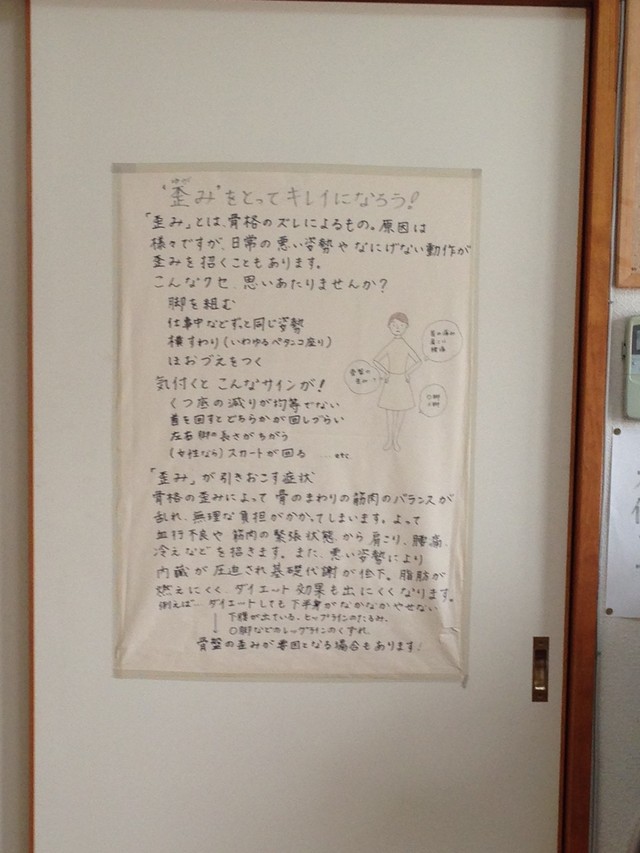 ゆが
"歪み"をとってキレイになろう!
「歪み」とは、骨格のズレによるもの。原因は
様々ですが、日常の悪い姿勢やなにげない動作が
歪みを招くこともあります。
こんなクセ、思いあたりませんか?
脚を組む
仕事中などずっと同じ姿勢
横すわり(いわゆるペタンコ座り)
ほおづえをつく
気付くとこんなサインが!
くつ底の減りが均等でない
首を回すとどちらかが回しづらい
左右脚の長さがちがう
(女性なら)スカートが回る ....etc
肩こり
腰痛
骨盤の
O脚
X脚
「歪み」が引きおこす症状
骨格の歪みによって骨のまわりの筋肉のバランスが
乱れ、無理な負担がかかってしまいます。よって
血行不良や筋肉の緊張状態から肩こり、腰痛、
冷えなどを招きます。また、悪い姿勢により
内臓が圧迫され基礎代謝が低下。脂肪が
燃えにくく、ダイエット効果も出にくくなります。
例えば… ダイエットしても下半身がなかなかやせない
下腹が出ている。ヒップラインのたるみ、
O脚などのレッグラインのくずれ、
↓
骨盤の歪みが要因となる場合もあります!